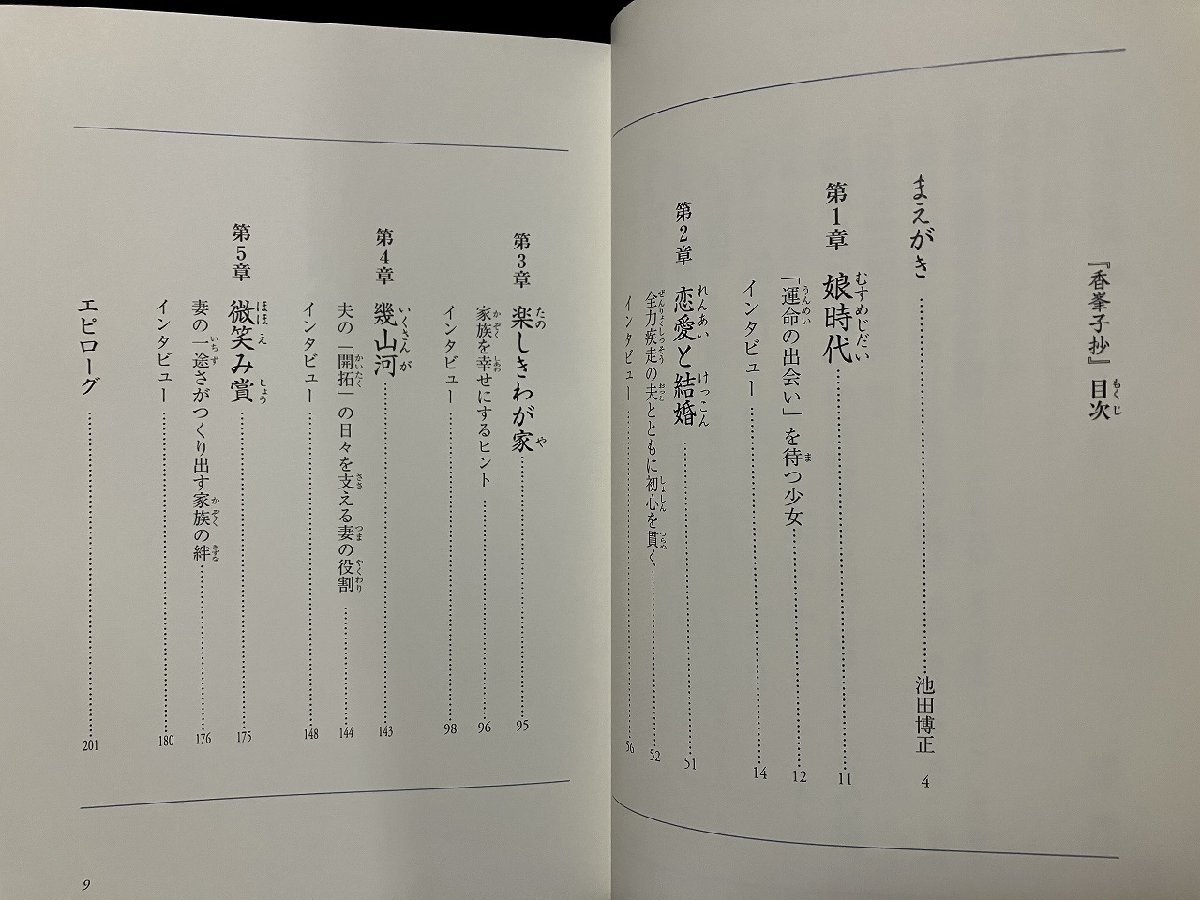 『香峯子抄』 目次
まえがき……………池田博正 4
第1章 娘時代……………11
「運命の出会い」を待つ少女……………12
インタビュー……………14
第2章 恋愛と結婚……………51
全力疾走の夫とともに初心を貫く……………52
インタビュー……………56
第3章 楽しきわが家……………95
家族を幸せにするヒント……………96
インタビュー……………98
第4章 幾山河……………143
夫の「開拓」の日々を支える妻の役割……………144
インタビュー……………148
第5章 微笑み賞……………175
妻の一途さがつくり出す家族の絆……………176
インタビュー……………180
エピローグ……………201
9